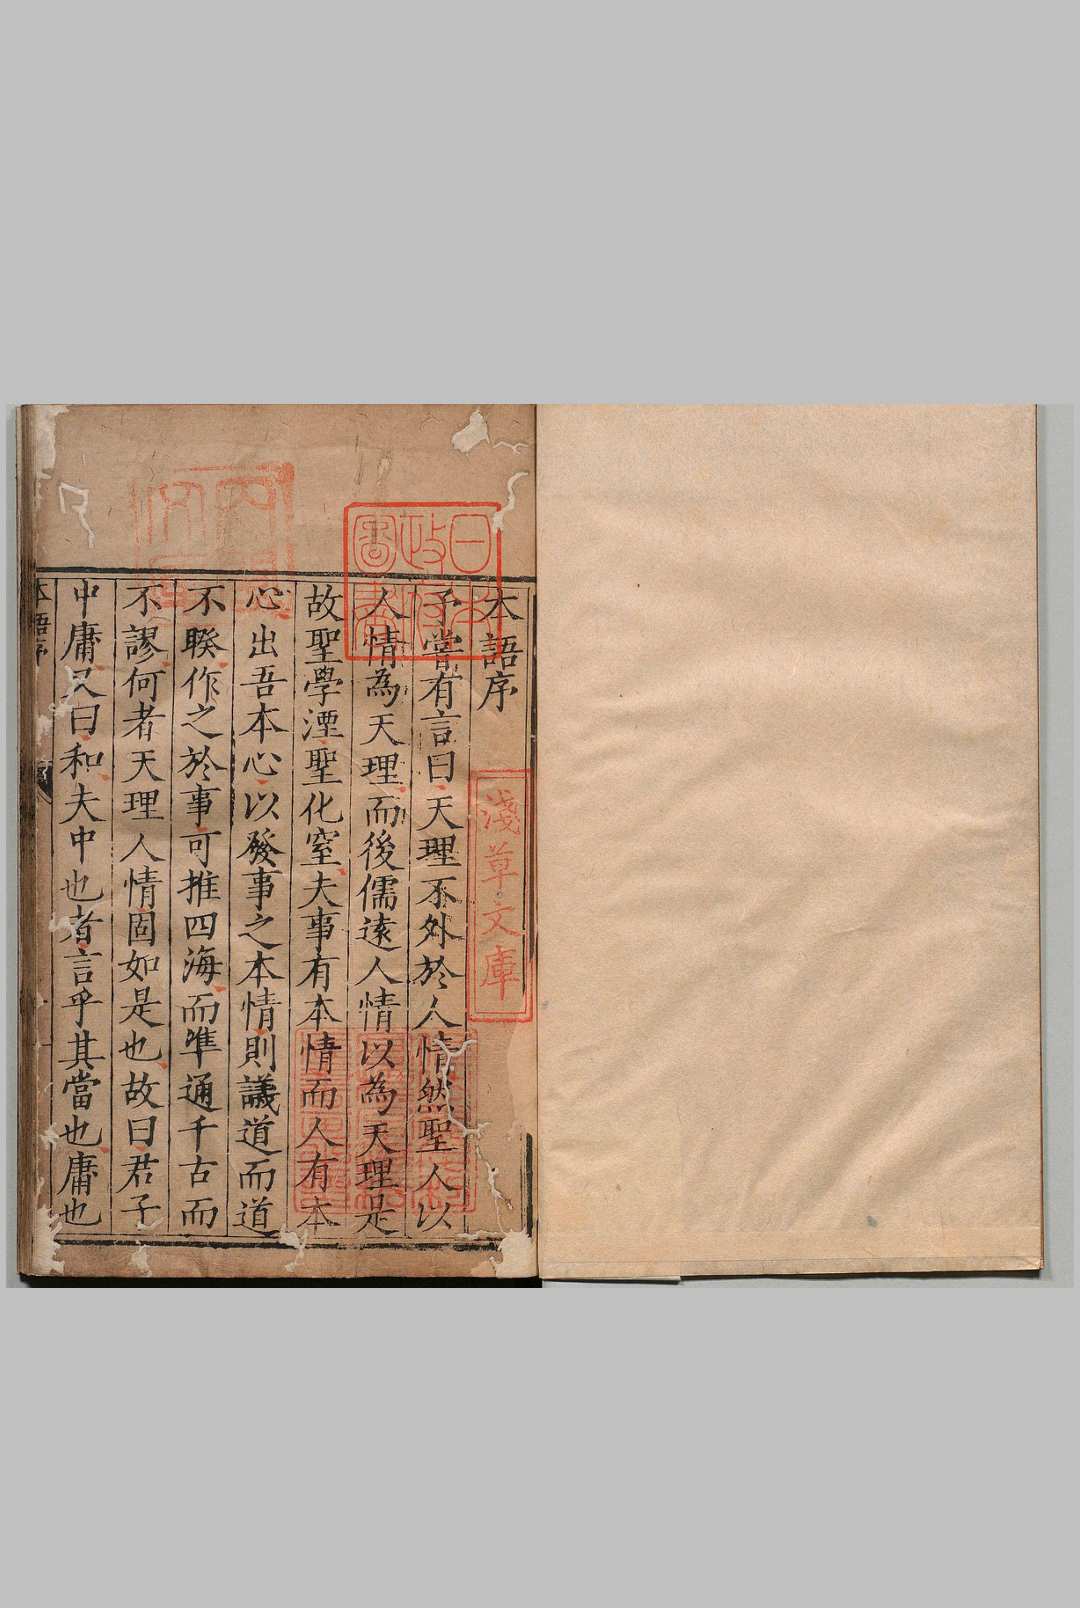 本語序
予嘗有言曰天理不外於人情然聖人以
人情為天理而後儒遠人情以為天理是
故聖學湮聖化窒夫事有本情而人有本
心出吾本心以發事之本情則議道而道
不睽作之於事可推四海而準通千古而
不謬何者天理人情固如是也故曰君子
中庸又曰和夫中也者言乎其當也庸也
本語序
日本
政府
圖書
淺草文庫